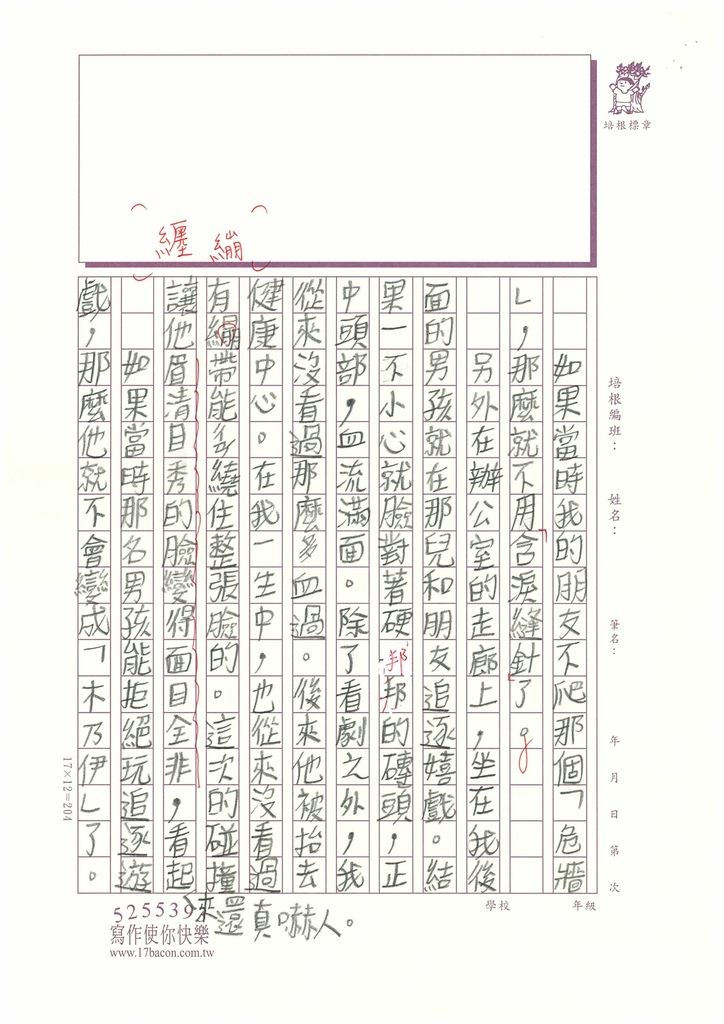 培根標章
纏 繃
如果當時我的朋友不爬那個「危牆
」，那麼就不用「含淚縫針」了。
另外在辦公室的走廊上，坐在我後
面的男孩就在那兒和朋友追逐嬉戲。結
果一不小心就臉對著硬邦邦的磚頭，正
中頭部，血流滿面。除了看劇之外，我
從來沒看過那麼多血過。後來他被抬去
健康中心。在我一生中，也從來沒看過
有繃帶能繞住整張臉的。這次的碰撞
讓他眉清目秀的臉變得面目全非，看起
來還真嚇人。
如果當時那名男孩能拒絕玩追逐遊
戲，那麼他就不會變成「木乃伊」了。
培根編班： 姓名： 筆名： 年 月 日 第 次
17×12=204
學校 年級
525539
寫作使你快樂
www.17bacon.com.tw